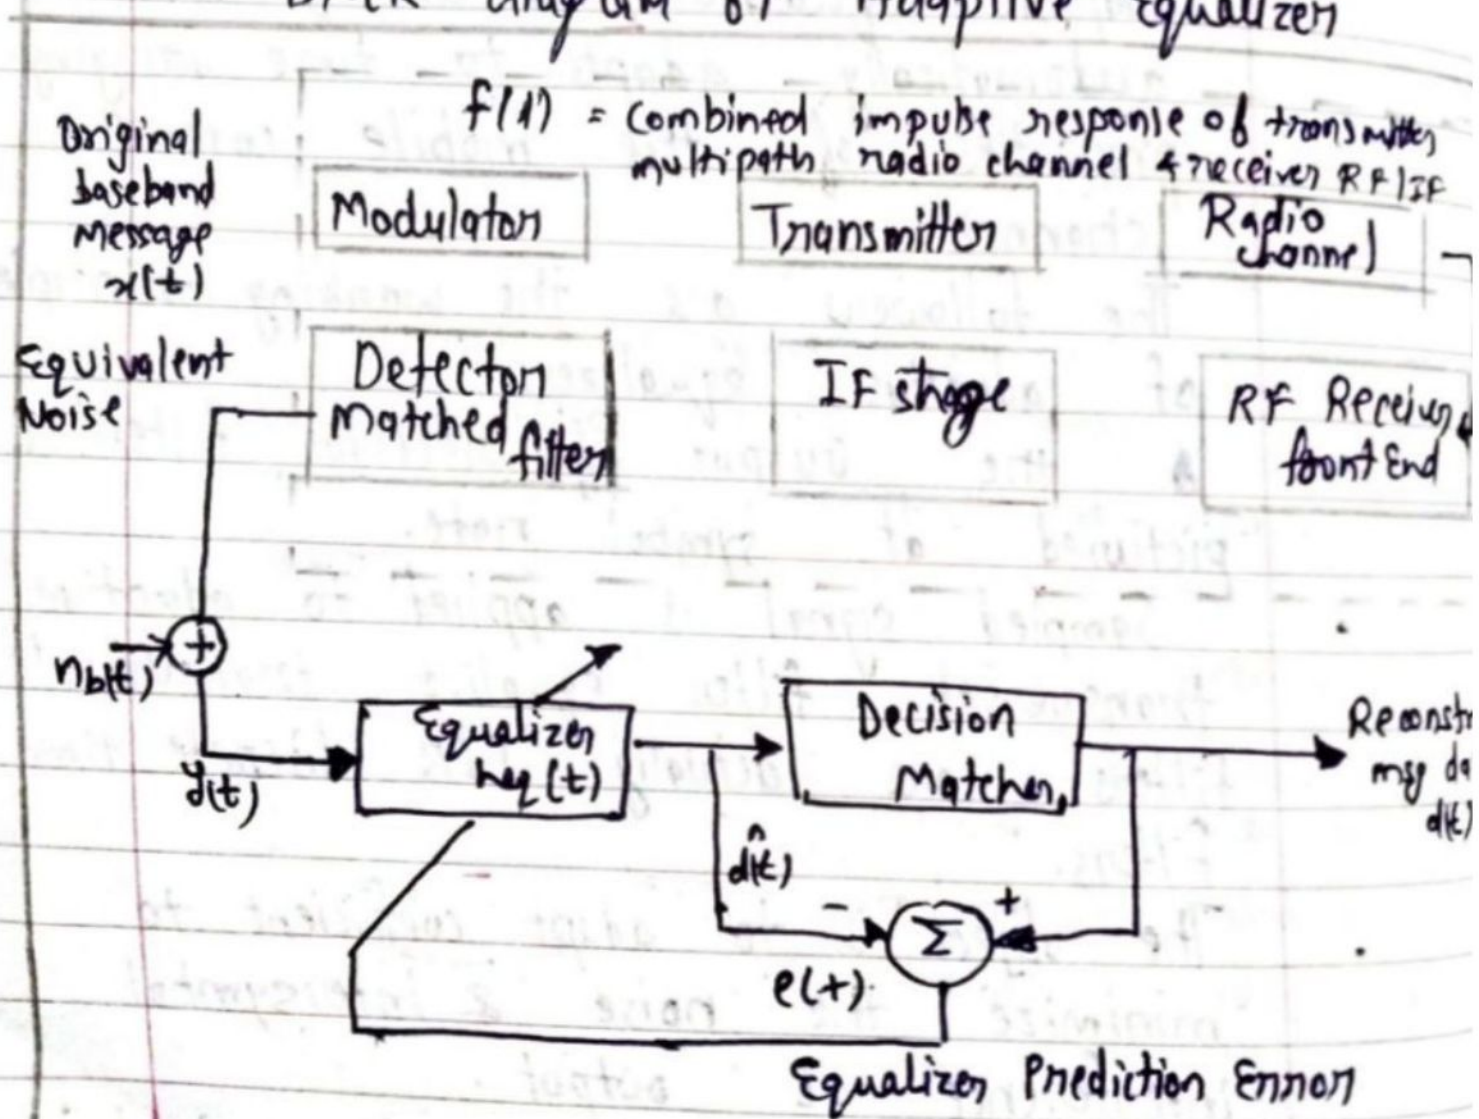 Block diagram of Adaptive Equalizer
f(t) = combined impulse response of transmitter
multipath radio channel & receiver RF/IF
Original
baseband
message
x(t)
Modulator
Transmitter
Radio
channel
Equivalent
Noise
Detector
Matched
filter
IF stage
RF Receiver
front End
+
nb(t)
y(t)
Equalizer
heq(t)
Decision
Matcher
Reconstr
msg da
d(t)
d̂(t)
-
+
Σ
e(t)
Equalizer Prediction Error